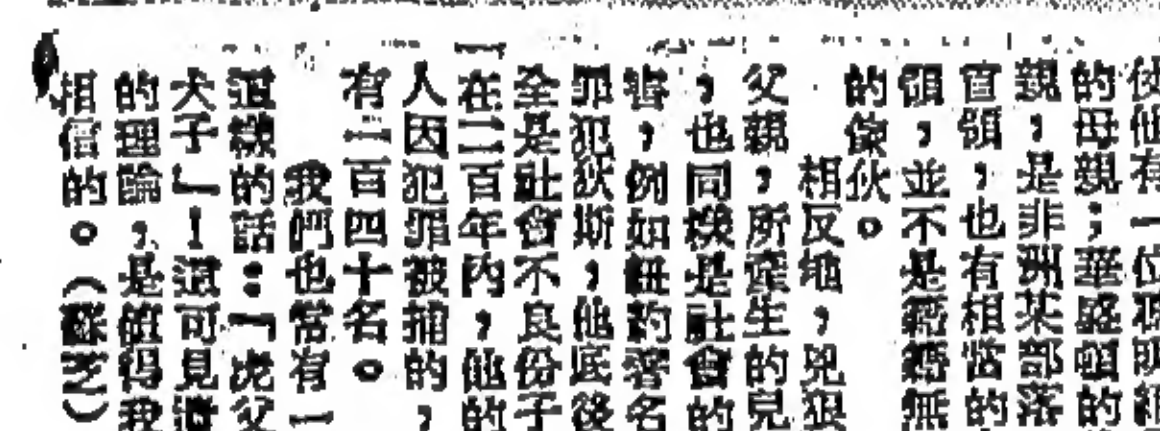 使他有一位
的母親；華盛頓的
親，是非洲某部落
官領，也有相當的
領，並不是籍籍無
的傢伙。
相反地，兇狠
父親，所產生的兒
，也同樣是社會的
害，例如紐約著名
罪犯狄斯，他底後
全是社會不良份子
在二百年內，他的
人因犯罪被捕的，
有二百四十名。
我們也常有一
這樣的話：「虎父
犬子」！這可見這
的理論，是值得我
相信的。（蘇芝）